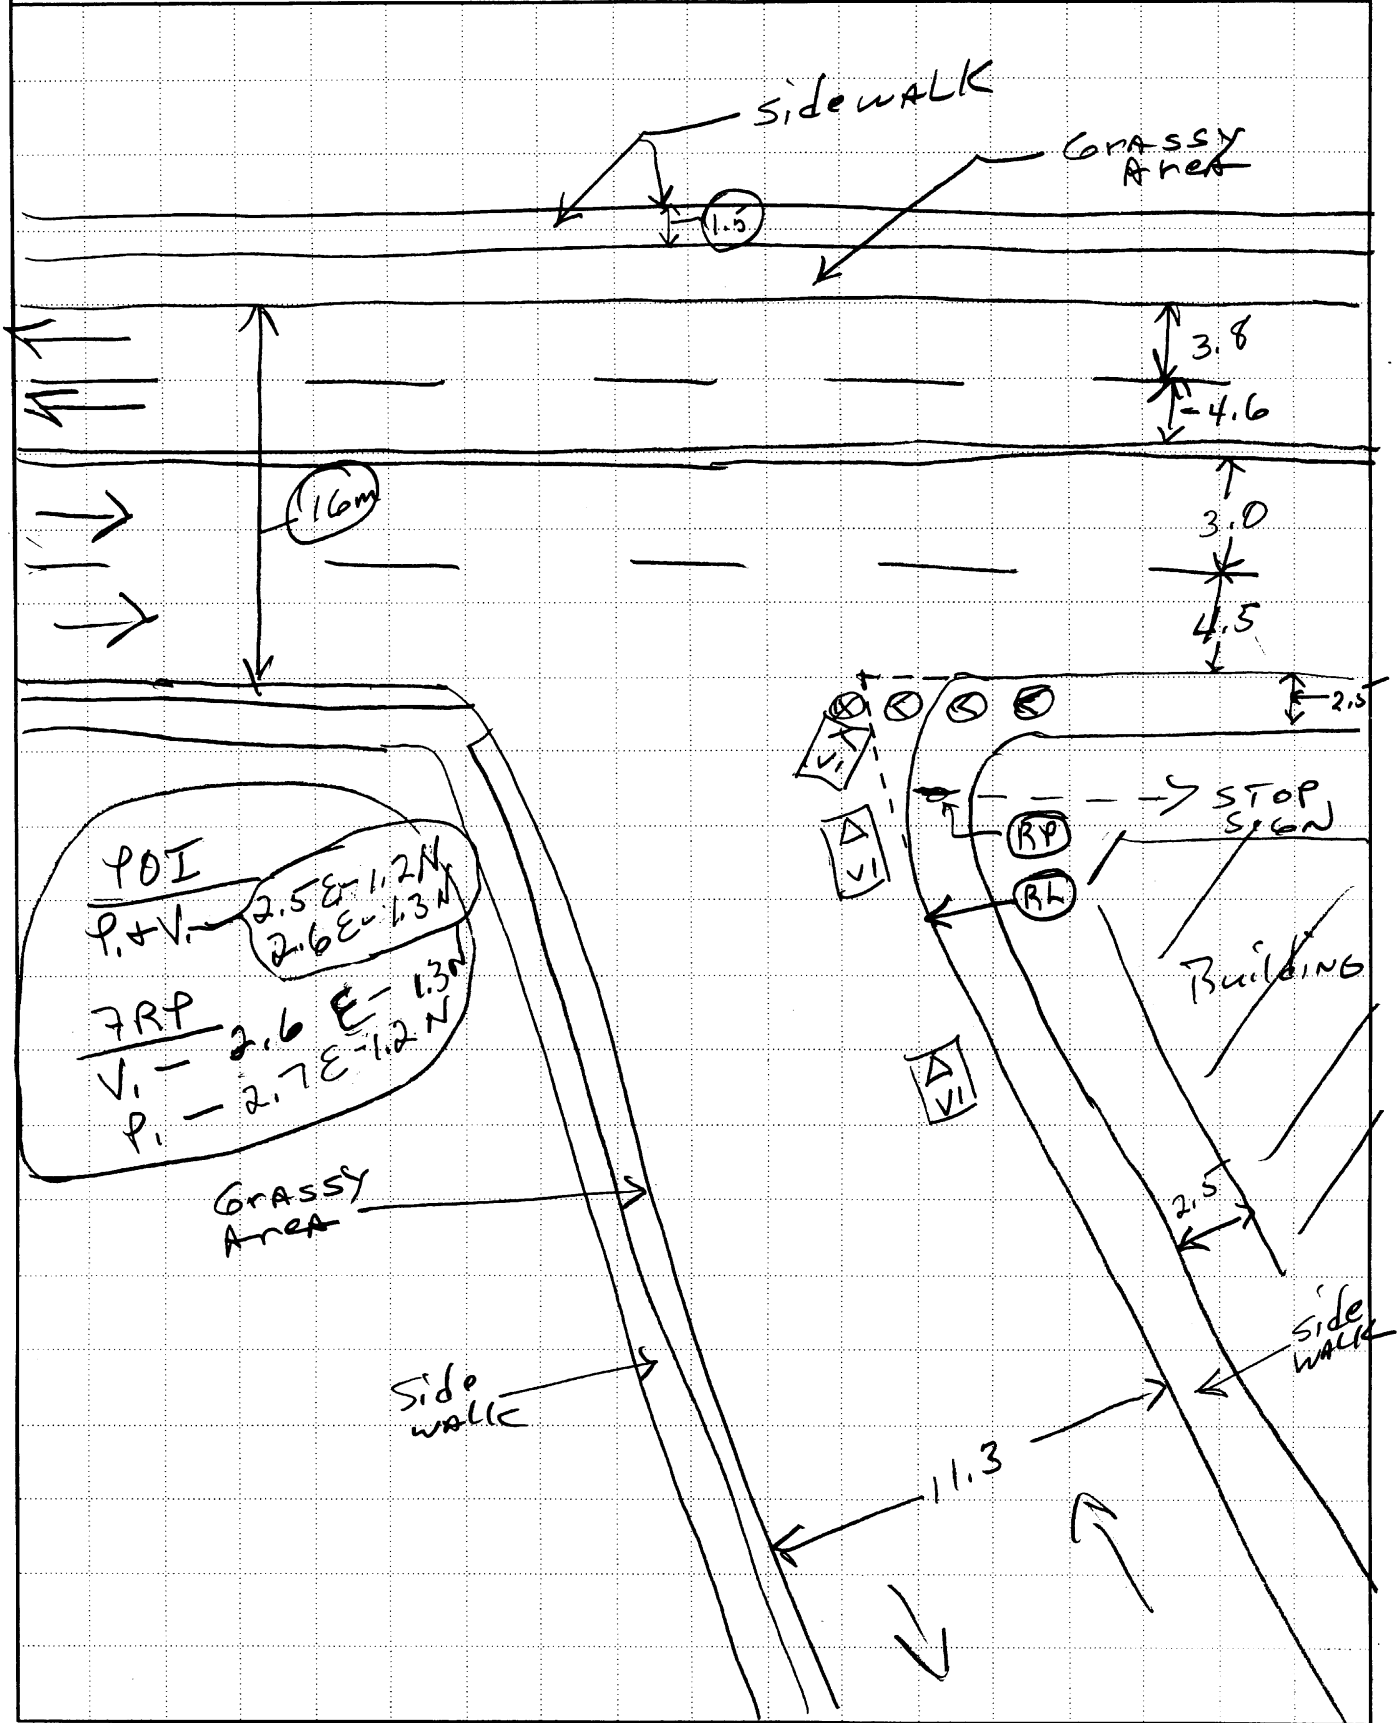 sidewALK
GrAssy
AreA
1.5
3.8
4.6
16m
3.0
4.5
2.5
V1
STOP
SIGN
V1
RP
POI
P1 + V1 - 2.5 E - 1.2 N
2.6 E - 1.3 N
RL
BuildiNG
7RP
V1 - 2.6 E - 1.3 N
P1 - 2.7 E - 1.2 N
V1
GrAssy
AreA
2.5
side
wALK
Side
wALK
11.3